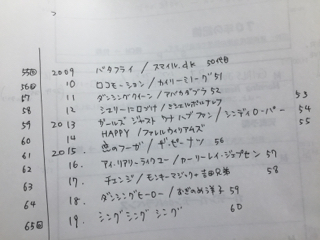 55回 2009 バタフライ / スマイル.dk 50代目
56回 10 ロコモーション / カイリーミノーグ 51
57 11 ダンシングクイーン / アバ 52
58 12 シェリーに口づけ / ミッシェルポルナレフ 53
59 2013 ガールズ ジャスト ワナ ハブ ファン / シンディローパー 54
60 14 HAPPY / ファレルウィリアムズ 55
61 2015 恋のフーガ / ザ・ピーナッツ 56
62 16. アイ・リアリーライクユー / カーリーレイ・ジェプセン 57
63 17. チェンジ / モンキーマジック+吉田兄弟 58
64 18. ダンシングヒーロー / 荻野目洋子 59
65回 19. シング シング シング 60